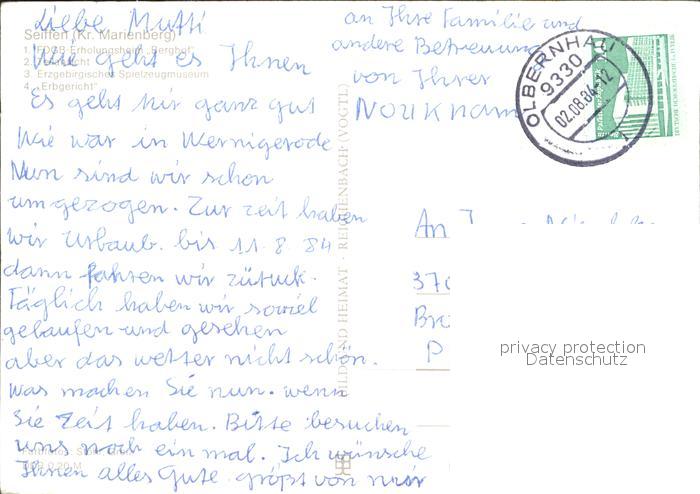 Liebe Mutti
Seiffen (Kr. Marienberg)
1. FDGB-Erholungsheim „Berghof"
Wie geht es Ihnen
3. Erzgebirgisches Spielzeugmuseum
4. „Erbgericht"
es geht mir ganz gut
Wie war in Wernigerode
Nun sind wir schon
umgezogen. Zur zeit haben
wir Urlaub. bis 11. 8 84
dann fahren wir zürück.
Täglich haben wir soviel
gelaufen und gesehen
aber das wetter nicht schön.
was machen Sie nun. wenn
Sie Zeit haben. Bitte besuchen
uns noch ein mal. Ich wünsche
Ihnen alles Gute. größt von mir
an Ihre Familie und
andere Betreuung
von Ihrer
BILD UND HEIMAT · REICHENBACH (VOGTL)
OLBERNHAU
9330
02.08.84-12
An
370
P
privacy protection
Datenschutz